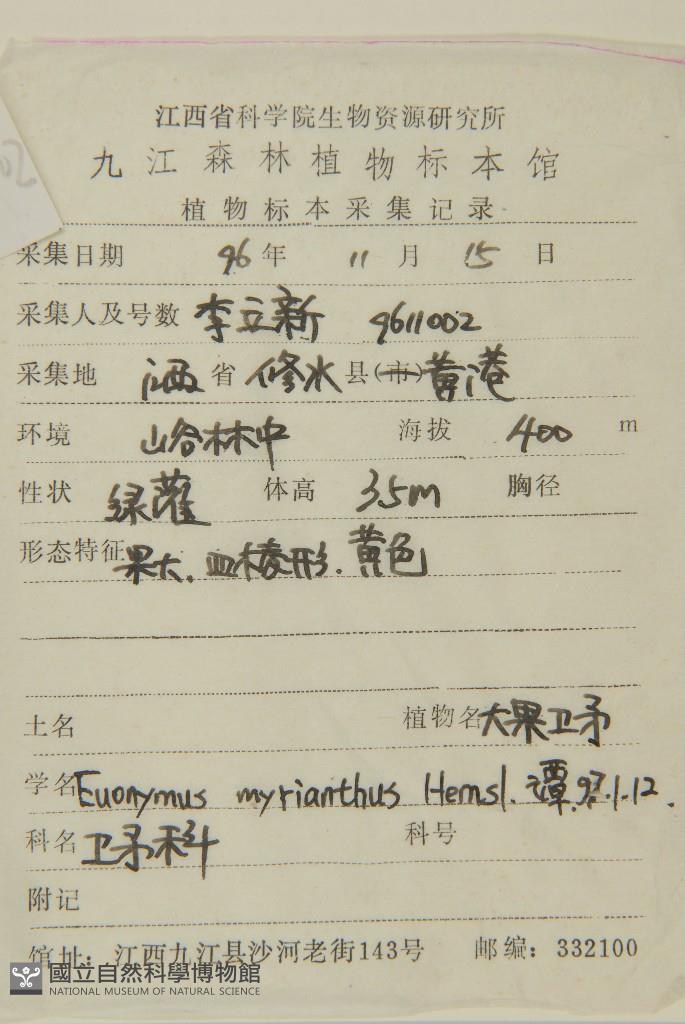 江西省科学院生物资源研究所
九江森林植物标本馆
植物标本采集记录
采集日期 96年 11月 15日
采集人及号数 李立新 9611002
采集地 江西省 修水县(市)黄港
环境 山谷林中 海拔 400 m
性状 绿灌 体高 3.5m 胸径
形态特征 果大,四棱形.黄色
土名 植物名 大果卫矛
学名 Euonymus myrianthus Hemsl. 谭.97.1.12.
科名 卫矛科 科号
附记
馆址:江西九江县沙河老街143号 邮编:332100
國立自然科學博物館
NATIONAL MUSEUM OF NATURAL SCIENCE